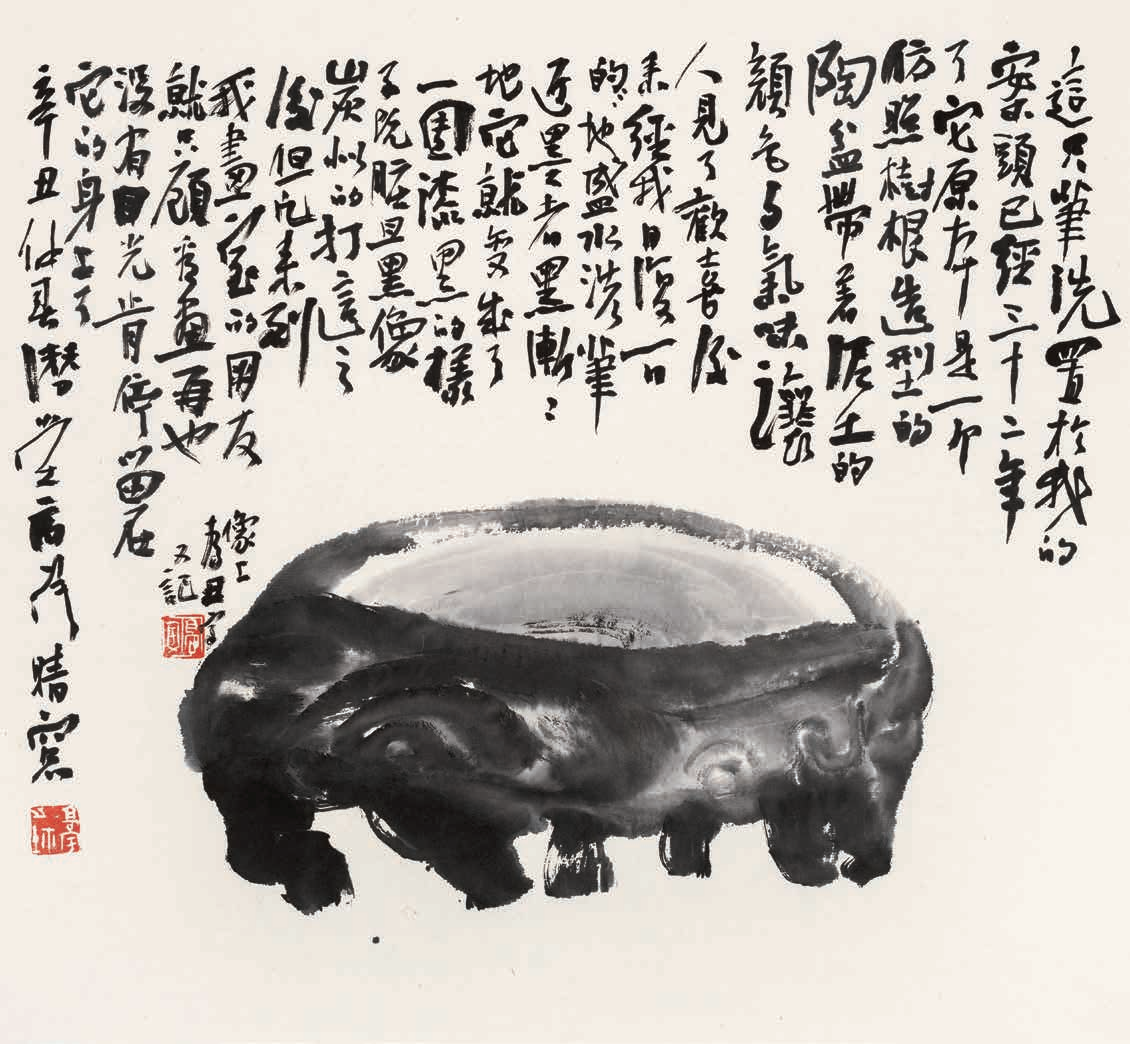 這只筆洗置於我的
案頭已經三十二年
了它原本是一个
仿照樹根造型的
陶盆帶着泥土的
顔色与氣味讓
人見了歡喜後
来經我日復一日
的地盛水洗筆
近墨者黑漸〻
地它就变成了
一團漆黑的樣
子既脏且黑像
炭似的打這之
後但凡来到
我畫室的朋友
就只顧看畫再也
没有目光肯停留在
它的身上了
辛丑仲春潛堂 晴窗
又記